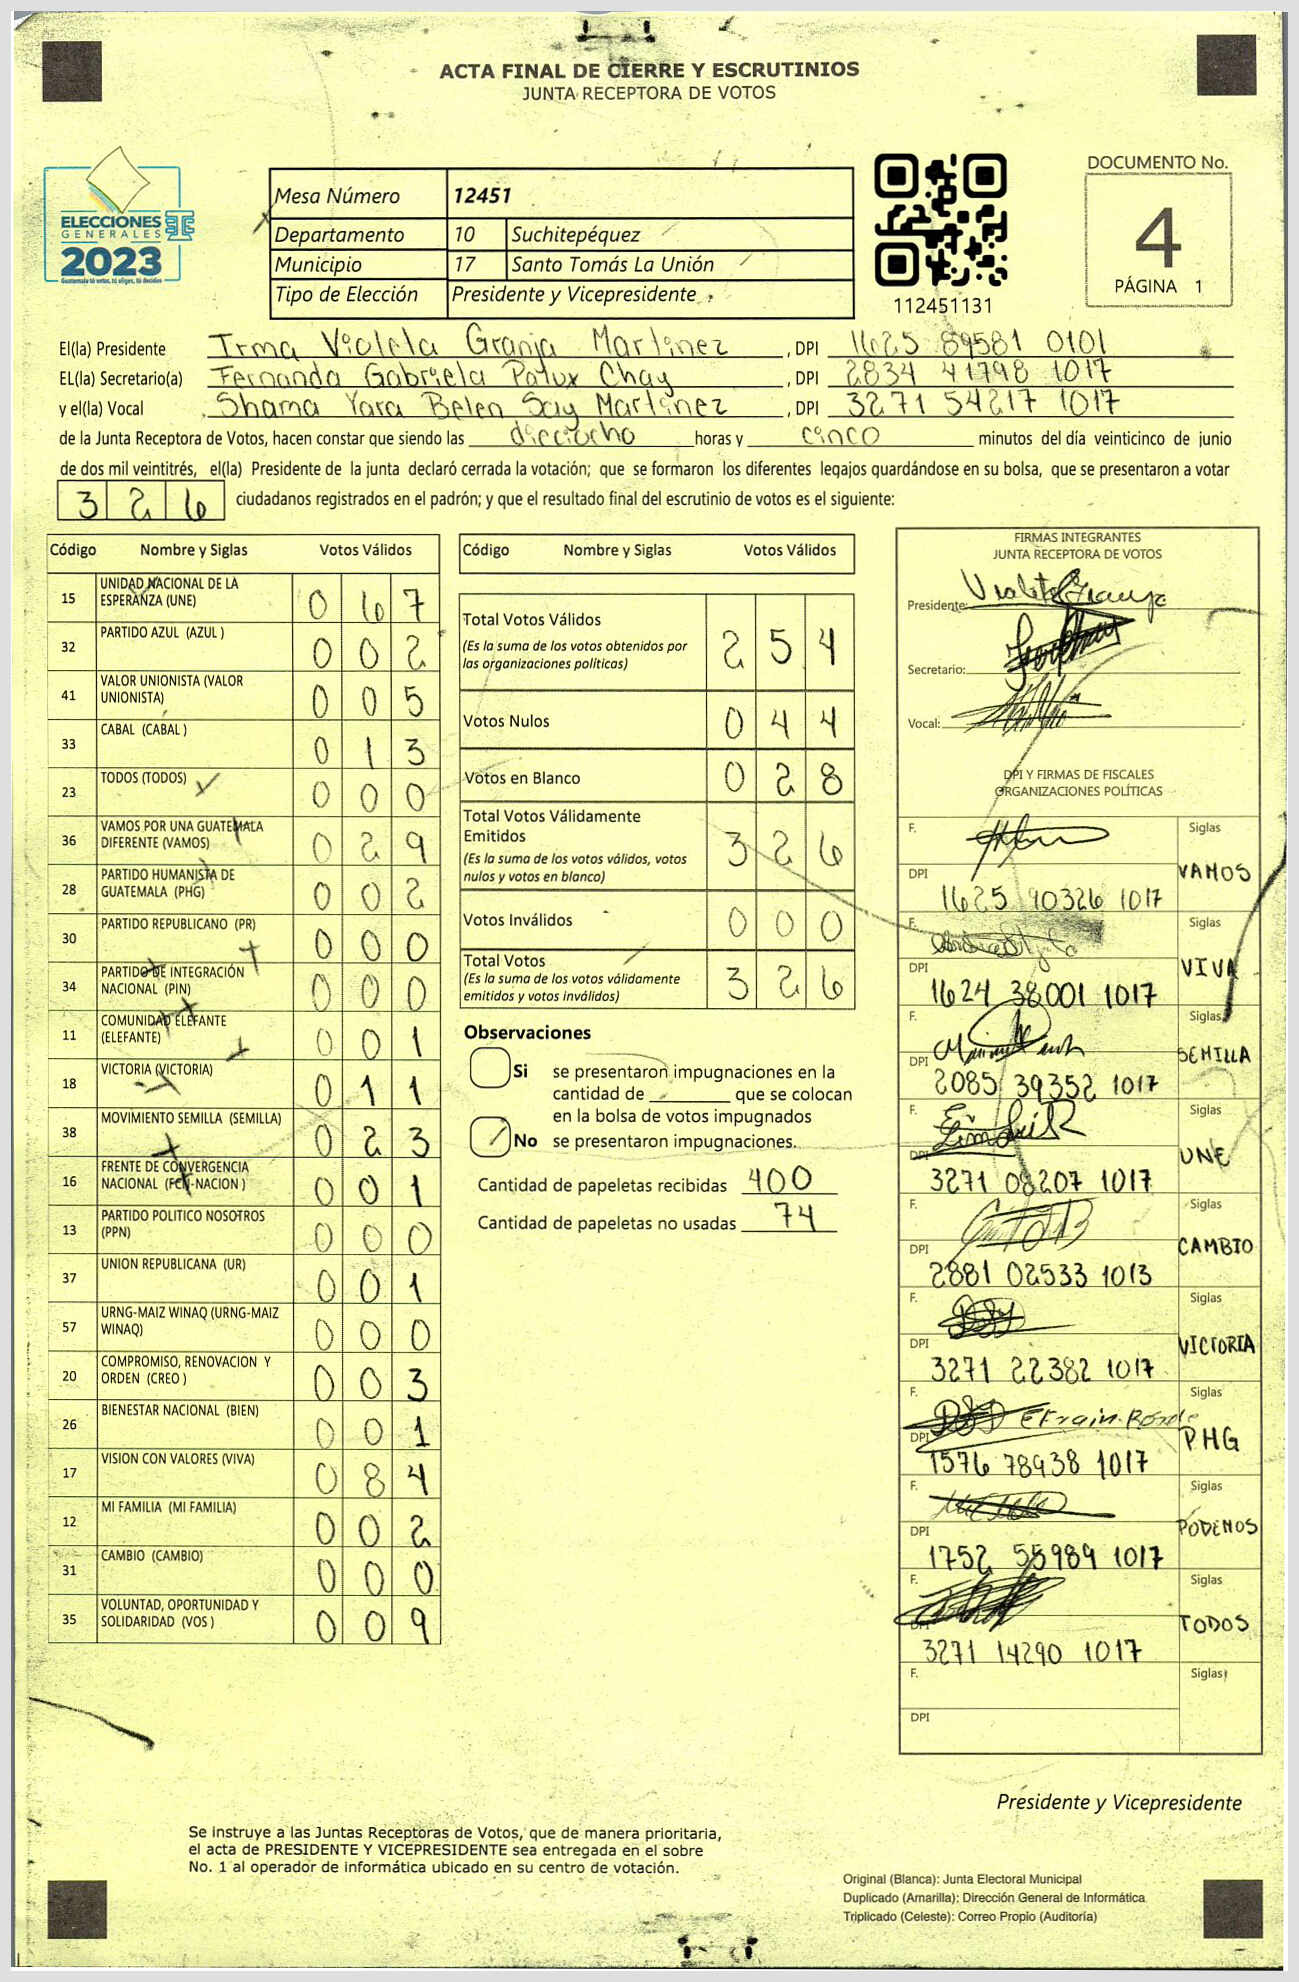 ACTA FINAL DE CIERRE Y ESCRUTINIOS
JUNTA RECEPTORA DE VOTOS
ELECCIONES
GENERALES
2023
Guatemala tú votas, tú eliges, tú decides
Mesa Número 12451
Departamento 10 Suchitepéquez
Municipio 17 Santo Tomás La Unión
Tipo de Elección Presidente y Vicepresidente
112451131
DOCUMENTO No.
4
PÁGINA 1
El(la) Presidente Irma Violeta Granja Martinez , DPI 1625 89581 0101
EL(la) Secretario(a) Fernanda Gabriela Patux Chay , DPI 2834 41798 1017
y el(la) Vocal Shama Yara Belen Say Martinez , DPI 3271 54217 1017
de la Junta Receptora de Votos, hacen constar que siendo las dieciocho horas y cinco minutos del día veinticinco de junio
de dos mil veintitrés, el(la) Presidente de la junta declaró cerrada la votación; que se formaron los diferentes legajos guardándose en su bolsa, que se presentaron a votar
326 ciudadanos registrados en el padrón; y que el resultado final del escrutinio de votos es el siguiente:
Código Nombre y Siglas Votos Válidos
15 UNIDAD NACIONAL DE LA ESPERANZA (UNE) 067
32 PARTIDO AZUL (AZUL ) 002
41 VALOR UNIONISTA (VALOR UNIONISTA) 005
33 CABAL (CABAL ) 013
23 TODOS (TODOS) 000
36 VAMOS POR UNA GUATEMALA DIFERENTE (VAMOS) 029
28 PARTIDO HUMANISTA DE GUATEMALA (PHG) 002
30 PARTIDO REPUBLICANO (PR) 000
34 PARTIDO DE INTEGRACIÓN NACIONAL (PIN) 000
11 COMUNIDAD ELEFANTE (ELEFANTE) 001
18 VICTORIA (VICTORIA) 011
38 MOVIMIENTO SEMILLA (SEMILLA) 023
16 FRENTE DE CONVERGENCIA NACIONAL (FCN-NACION ) 001
13 PARTIDO POLITICO NOSOTROS (PPN) 000
37 UNION REPUBLICANA (UR) 001
57 URNG-MAIZ WINAQ (URNG-MAIZ WINAQ) 000
20 COMPROMISO, RENOVACION Y ORDEN (CREO ) 003
26 BIENESTAR NACIONAL (BIEN) 001
17 VISION CON VALORES (VIVA) 084
12 MI FAMILIA (MI FAMILIA) 002
31 CAMBIO (CAMBIO) 000
35 VOLUNTAD, OPORTUNIDAD Y SOLIDARIDAD (VOS ) 009
Código Nombre y Siglas Votos Válidos
Total Votos Válidos 254
(Es la suma de los votos obtenidos por
las organizaciones políticas)
Votos Nulos 044
Votos en Blanco 028
Total Votos Válidamente
Emitidos 326
(Es la suma de los votos válidos, votos
nulos y votos en blanco)
Votos Inválidos 000
Total Votos 326
(Es la suma de los votos válidamente
emitidos y votos inválidos)
Observaciones
Si se presentaron impugnaciones en la
cantidad de ________ que se colocan
en la bolsa de votos impugnados
No se presentaron impugnaciones.
Cantidad de papeletas recibidas 400
Cantidad de papeletas no usadas 74
FIRMAS INTEGRANTES
JUNTA RECEPTORA DE VOTOS
Presidente: Violeta Granja
Secretario:
Vocal:
DPI Y FIRMAS DE FISCALES
ORGANIZACIONES POLÍTICAS
F. Siglas
DPI 1625 90326 1017 VAMOS
F. Siglas
DPI 1624 38001 1017 VIVA
F. Siglas
DPI 2085 39352 1017 SEMILLA
F. Siglas
DPI 3271 08207 1017 UNE
F. Siglas
DPI 2881 02533 1013 CAMBIO
F. Siglas
DPI 3271 22382 1017 VICTORIA
F. Efrain Siglas
DPI 1576 78938 1017 PHG
F. Siglas
DPI 1752 55989 1017 PODEMOS
F. Siglas
DPI 3271 14290 1017 TODOS
F. Siglas
DPI
Presidente y Vicepresidente
Se instruye a las Juntas Receptoras de Votos, que de manera prioritaria,
el acta de PRESIDENTE Y VICEPRESIDENTE sea entregada en el sobre
No. 1 al operador de informática ubicado en su centro de votación.
Original (Blanca): Junta Electoral Municipal
Duplicado (Amarilla): Dirección General de Informática
Triplicado (Celeste): Correo Propio (Auditoría)